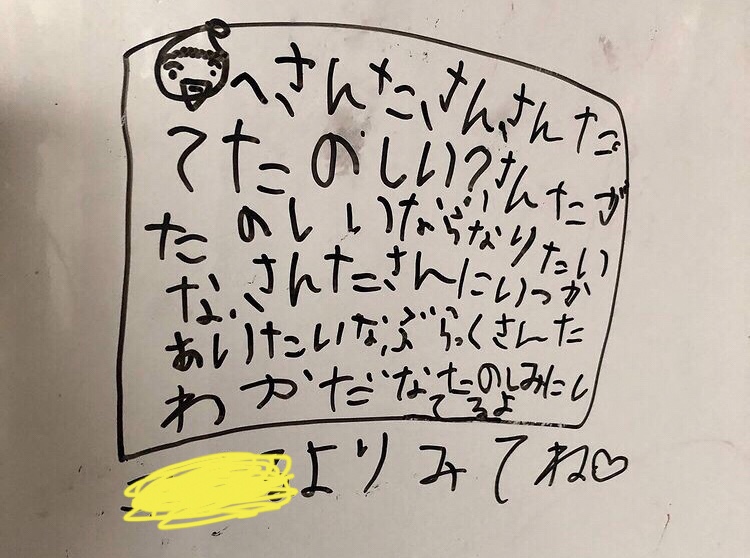 へ、さんた、さん、さんた
てたのしい?さんたが
たのしいならなりたい
な、さんたさんにいつか
あいたいな、ぶらっくさんた
わやだなたのしみにし
てるよ
よりみてね♡